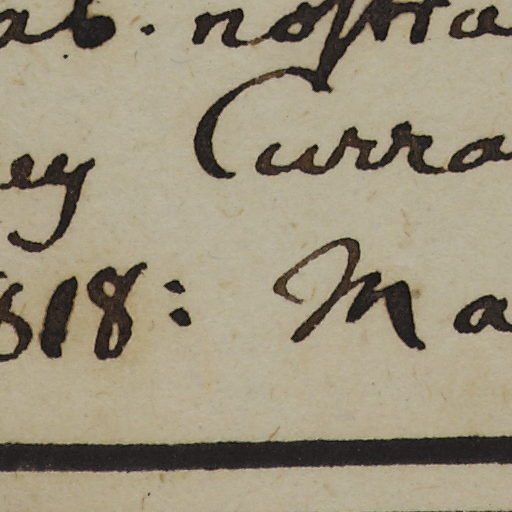 ab. nostra
ey Curra
818: Ma